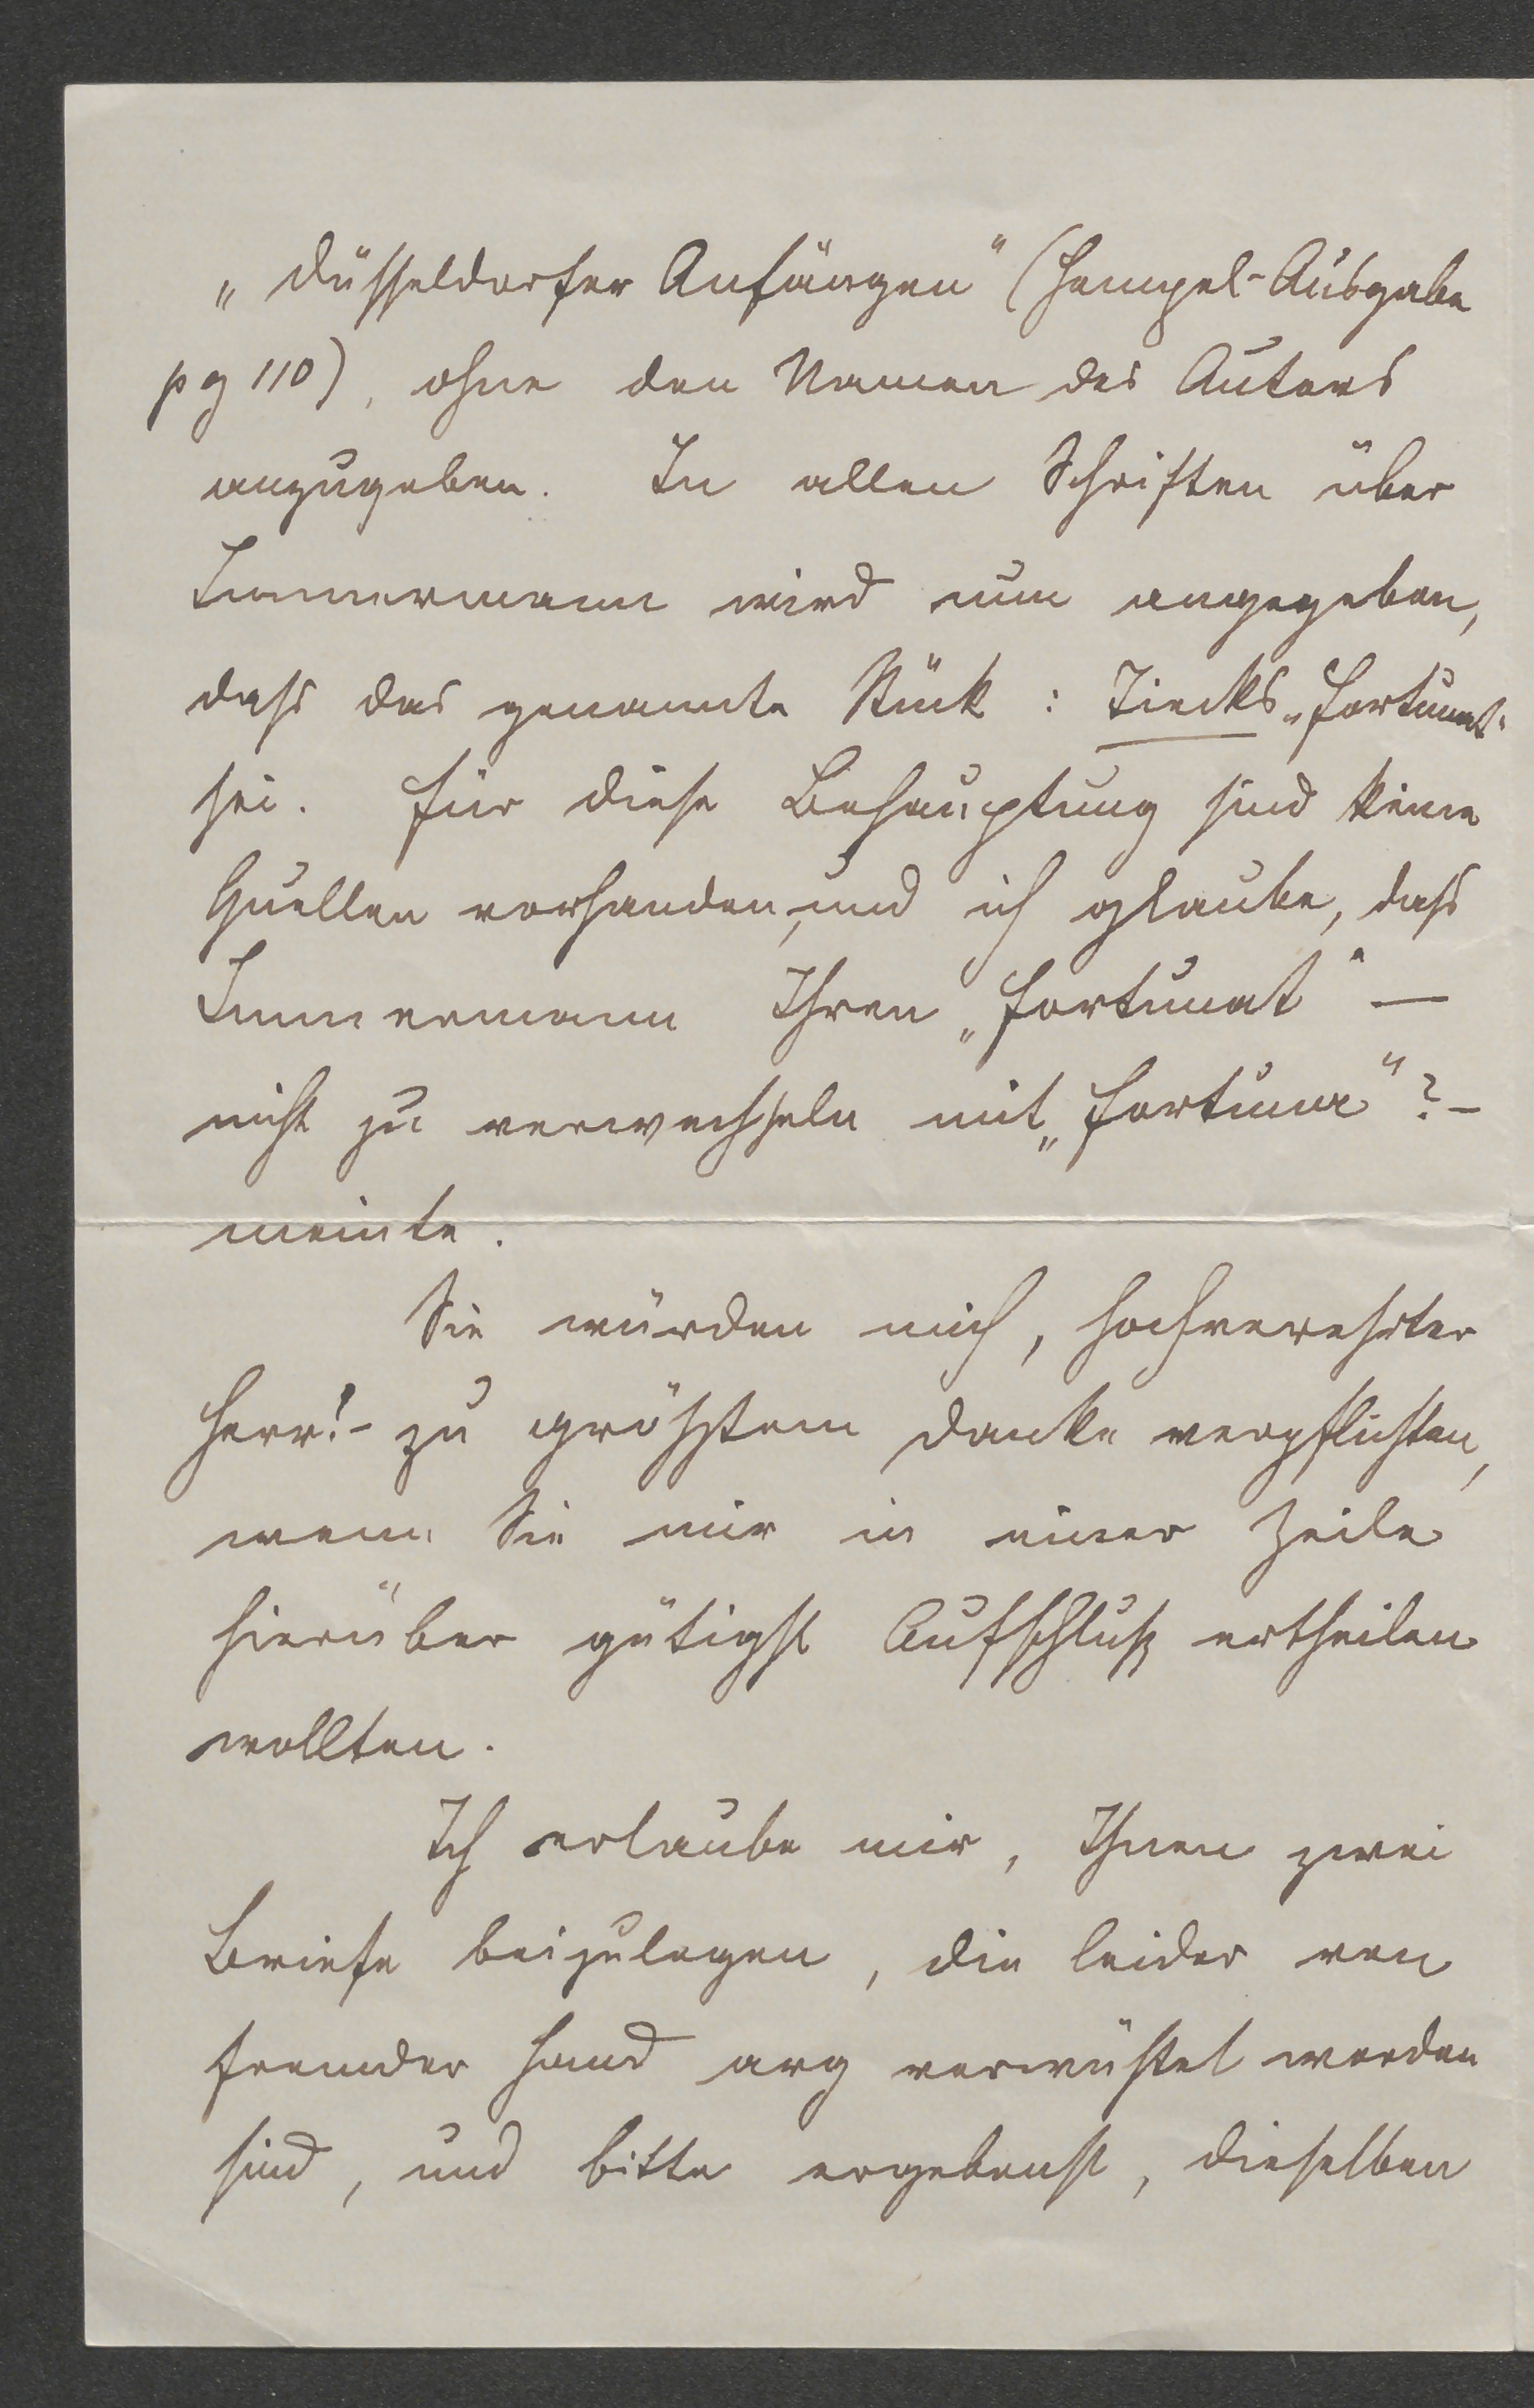 „Düsseldorfer Anfängen" (Hempel-Ausgabe
pg 110), ohne den Namen des Autors
anzugeben. In allen Schriften über
Immermann wird nun angegeben,
dass das genannte Stück : Tiecks „Fortunat"
sei. Für diese Behauptung sind keine
Quellen vorhanden, und ich glaube, dass
Immermann Ihren „Fortunat" —
nicht zu verwechseln mit „Fortuna"? –
meinte.
Sie würden mich, hochverehrter
Herr! – zu größtem Danke verpflichten,
wenn Sie mir in einer Zeile
hierüber gütigst Aufschluß ertheilen
wollten.
Ich erlaube mir, Ihnen zwei
Briefe beizulegen, die leider von
fremder Hand arg verwüstet worden
sind, und bitte ergebenst, dieselben